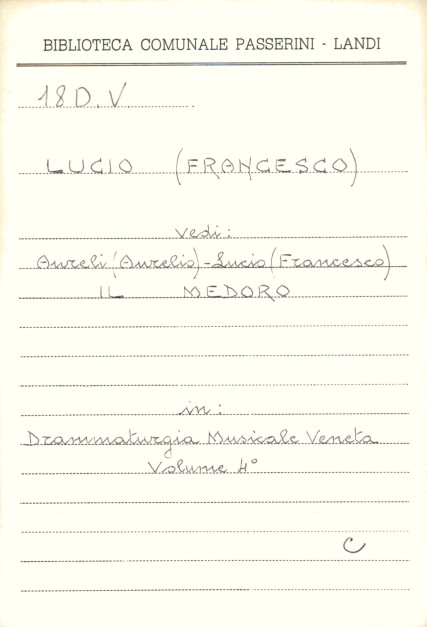 BIBLIOTECA COMUNALE PASSERINI - LANDI
18 D. V
LUCIO (FRANCESCO)
vedi:
Aureli (Aurelio) - Lucio (Francesco)
IL MEDORO
in:
Drammaturgia Musicale Veneta
Volume 4°
C